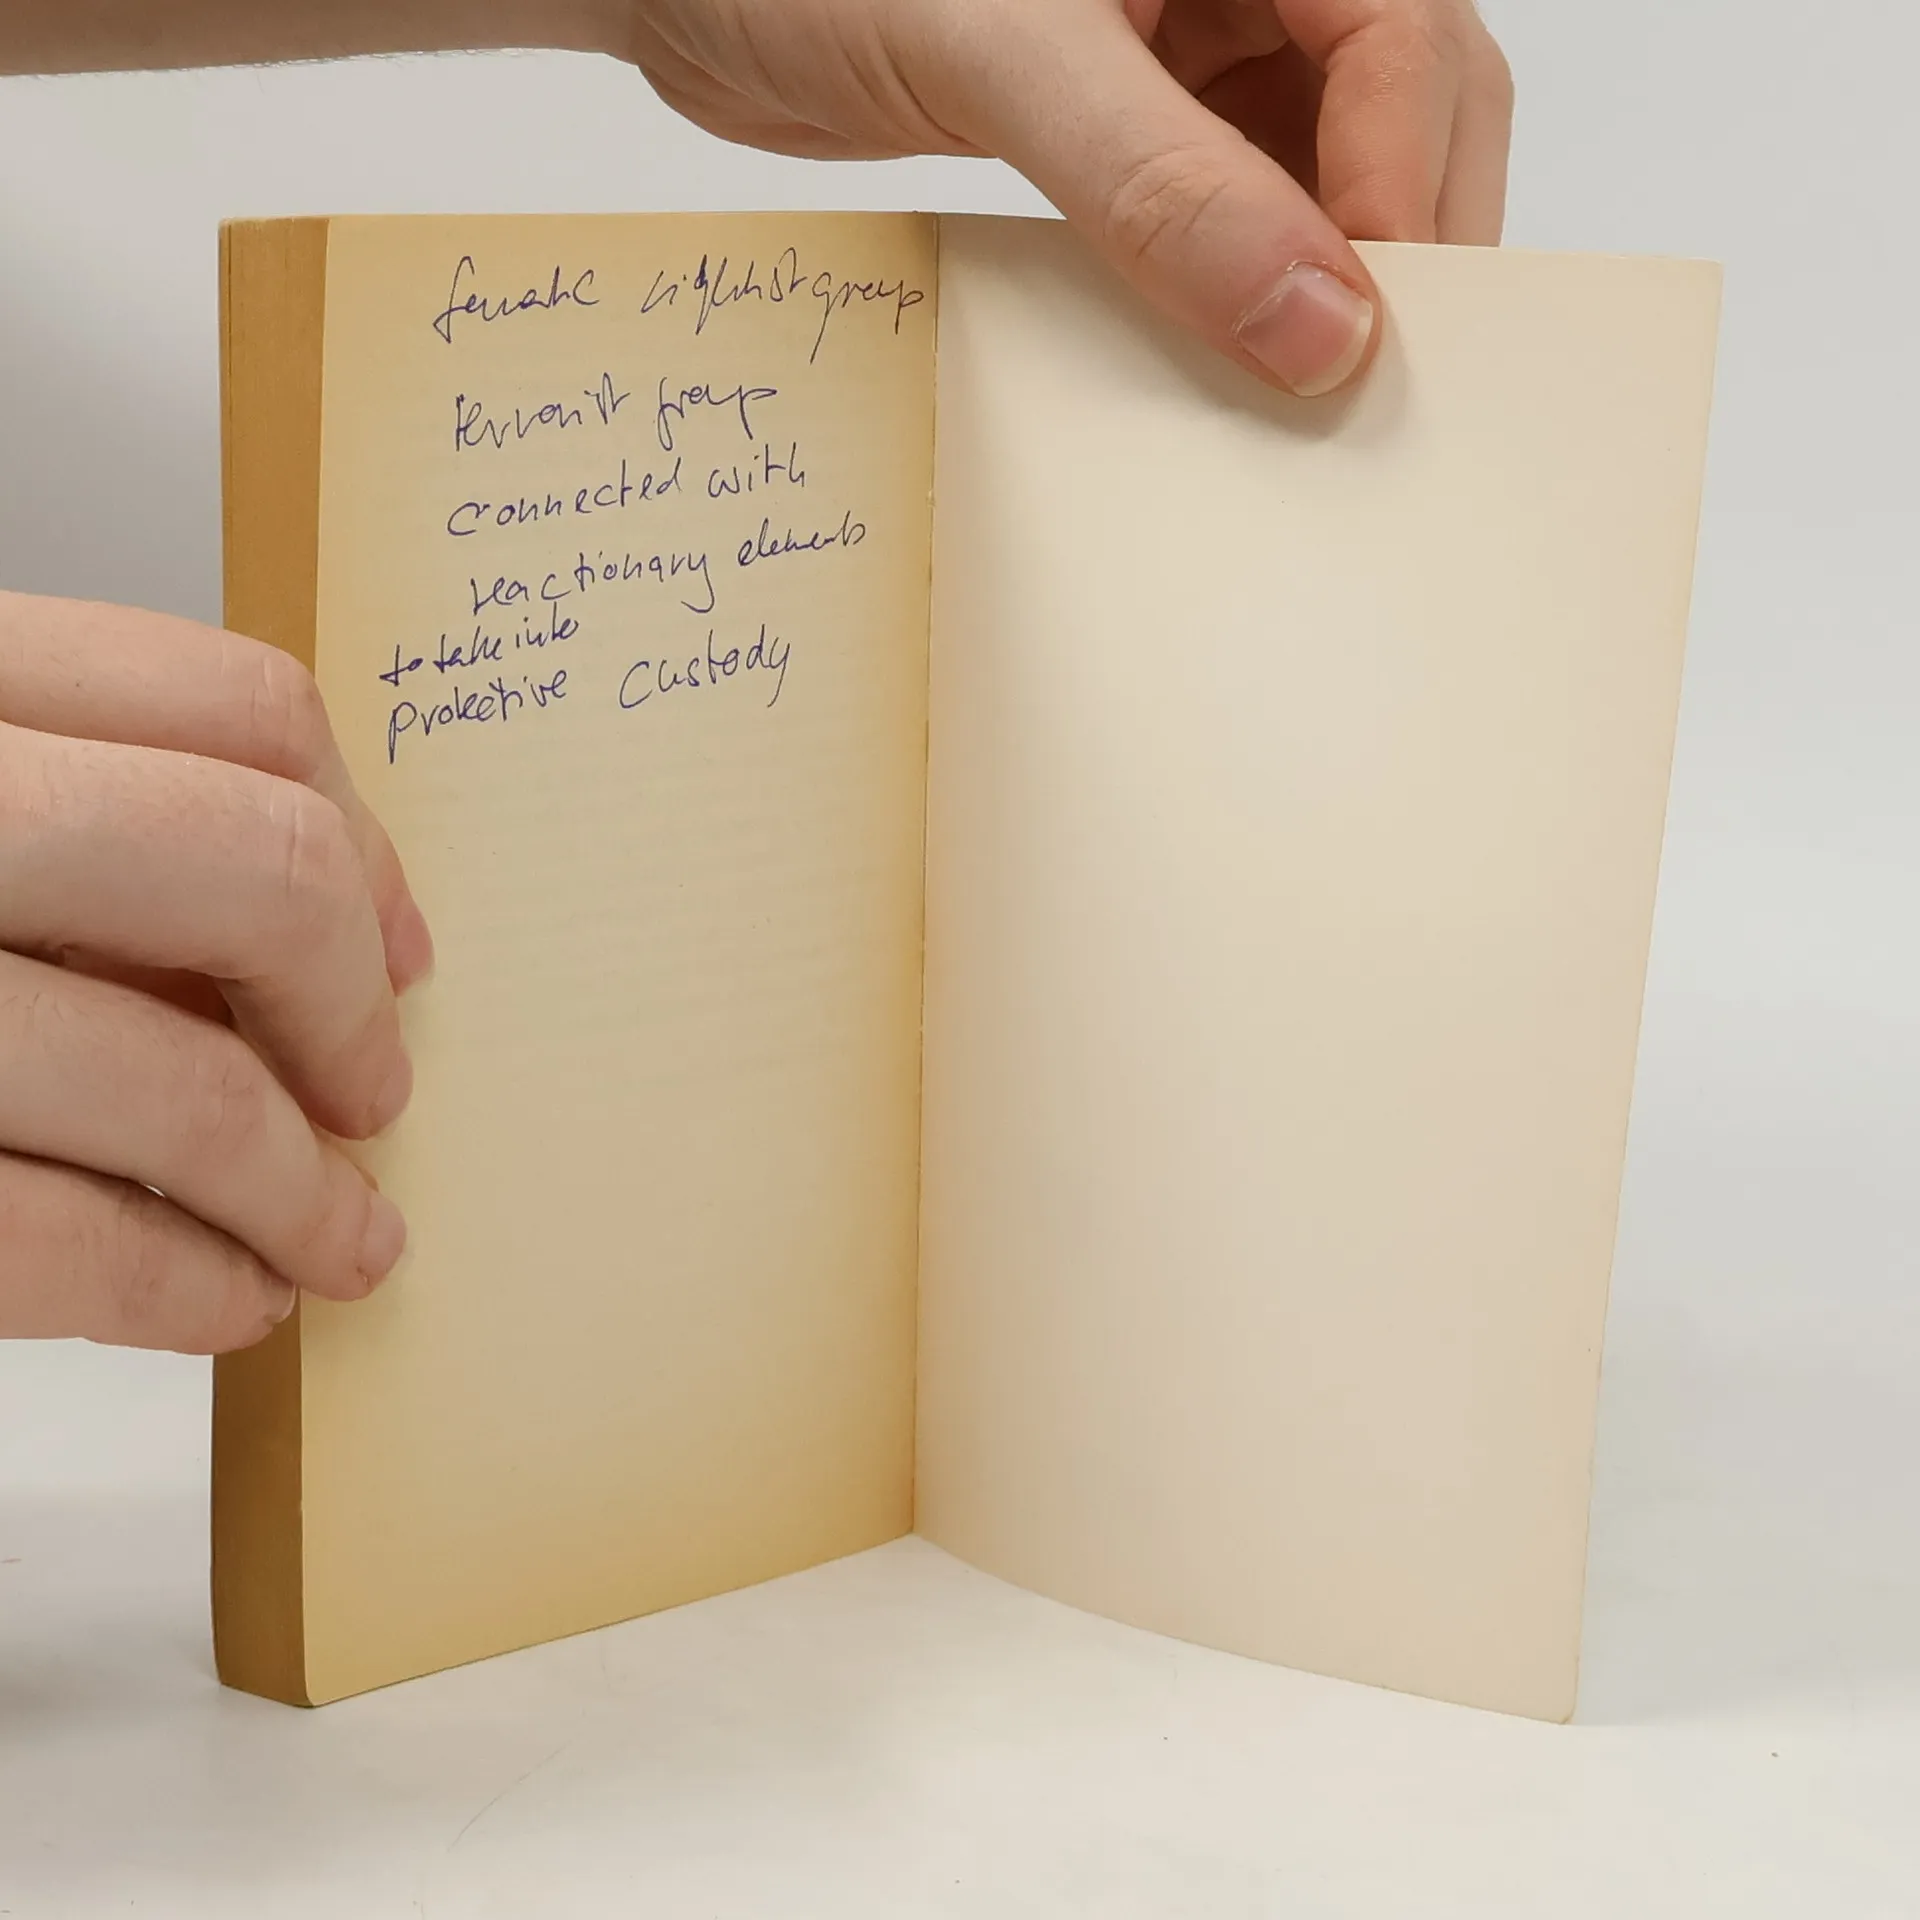 rightist group
terrorist group
connected with
reactionary elements
to take into
protective custody